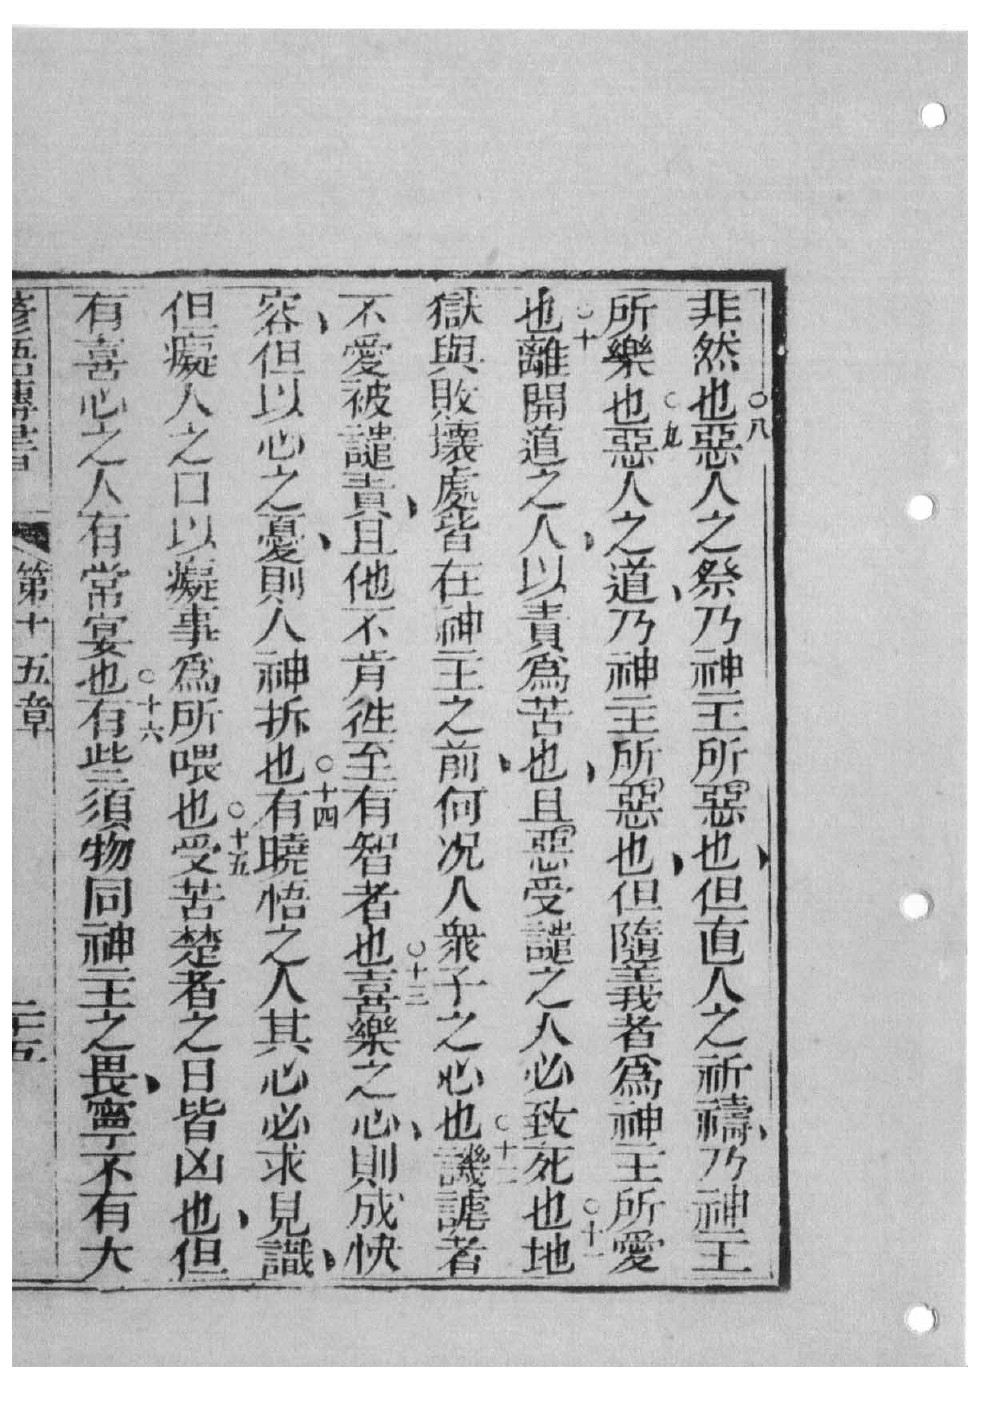 非然也○八惡人之祭乃神主所惡也但直人之祈禱乃神主
所樂也○九惡人之道乃神主所惡也但隨義者爲神主所愛
也○十離開道之人以責爲苦也且惡受譴之人必致死也○十一地
獄與敗壞處皆在神主之前何况人衆子之心也○十二譏謔者
不愛被譴責且他不肯徃至有智者也○十三喜樂之心則成快
容但以心之憂則人神拆也○十四有曉悟之人其心必求見識
但癡人之口以癡事爲所喂也○十五受苦楚者之日皆凶也但
有喜心之人有常宴也○十六有些須物同神主之畏寧不有大
諺語傳書 第十五章 二十五